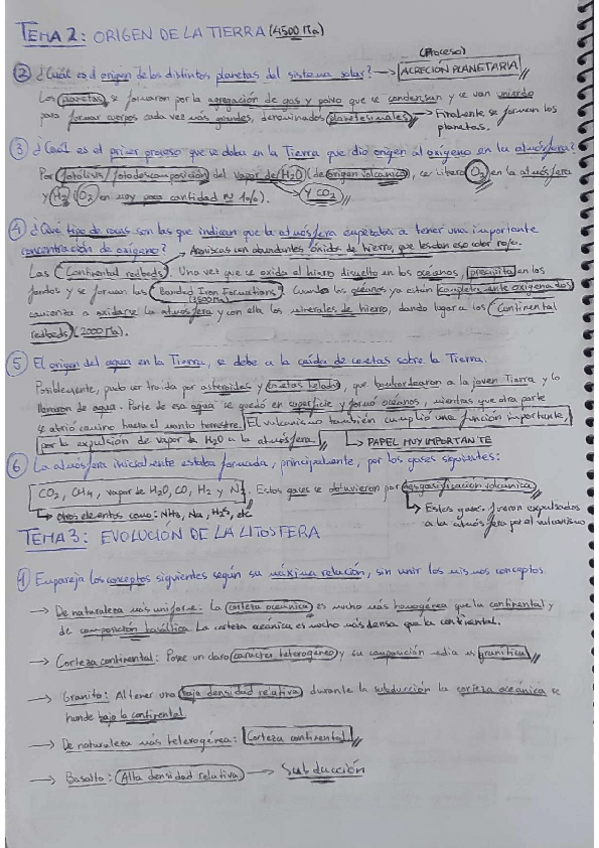 TEMA 2: ORIGEN DE LA TIERRA (4500 Ma)
(Proceso)
2 ¿Cuál es el origen de los distintos planetas del sistema solar? → ACRECIÓN PLANETARIA
Los planetas, se formaron por la agregación de gas y polvo que se condensan y se van uniendo
para formar cuerpos cada vez más grandes, denominados planetesimales → Finalmente se forman los
planetas.
3 ¿Cuál es el primer proceso que se daba en la Tierra que dio origen al oxígeno en la atmósfera?
Por fotólisis/fotodescomposición del vapor de H2O (de origen volcánico), se libera O2 en la atmósfera
y H2 (O2 en muy poca cantidad ≈ 1%). y CO2
4 ¿Qué tipo de rocas son las que indican que la atmósfera empezaba a tener una importante
concentración de oxígeno? → Areniscas con abundantes óxidos de hierro, que les dan ese color rojo.
Las Continental redbeds. Una vez que se oxida el hierro disuelto en los océanos, precipita en los
fondos y se forman las Banded Iron Formations. Cuando los océanos ya están completamente oxigenados
(2500 Ma)
comienza a oxidarse la atmósfera y con ella los minerales de hierro, dando lugar a los Continental
redbeds (2000 Ma).
5 El origen del agua en la Tierra, se debe a la caída de cometas sobre la Tierra.
Posiblemente, pudo ser traida por asteroides y cometas helados, que bombardearon a la joven Tierra y la
llenaron de agua. Parte de esa agua se quedó en superficie y formó océanos, mientras que otra parte
se abrió camino hacia el manto terrestre. El vulcanismo también cumplió una función importante,
por la expulsión de vapor de H2O a la atmósfera. → PAPEL MUY IMPORTANTE
6 La atmósfera inicialmente estaba formada, principalmente, por los gases siguientes:
CO2, CH4, vapor de H2O, CO, H2 y N2. Estos gases se obtuvieron por desgasificación volcánica
↳ otros elementos como: NH3, Na, H2S, etc
↳ Estos gases fueron expulsados
a la atmósfera por el vulcanismo
TEMA 3: EVOLUCIÓN DE LA LITOSFERA
1 Empareja los conceptos siguientes según su máxima relación, sin unir los mismos conceptos
→ De naturaleza más uniforme: La corteza oceánica es mucho más homogénea que la continental y
de composición basáltica. La corteza oceánica es mucho más densa que la continental.
→ Corteza continental: Posee un claro carácter heterogéneo y su composición media es granítica
→ Granito: Al tener una baja densidad relativa durante la subducción la corteza oceánica se
hunde bajo la continental
→ De naturaleza más heterogénea: Corteza continental
→ Basalto: Alta densidad relativa → Subducción